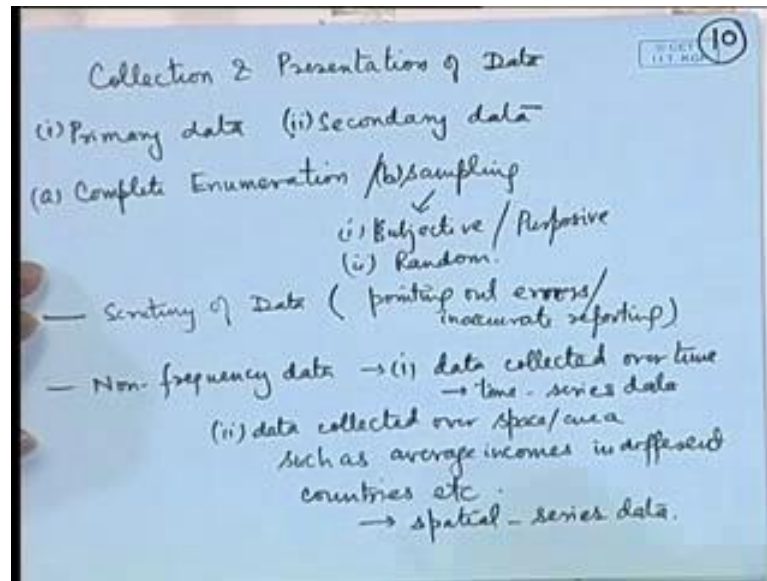 Collection & Presentation of Data
10
I.I.T. KGP
(i) Primary data (ii) Secondary data
(a) Complete Enumeration / (b) sampling
(i) Subjective / Purposive
(ii) Random.
— Scrutiny of Data ( pointing out errors /
inaccurate reporting )
— Non-frequency data → (i) data collected over time
→ time-series data
(ii) data collected over space/area
such as average incomes in different
countries etc.
→ spatial-series data.